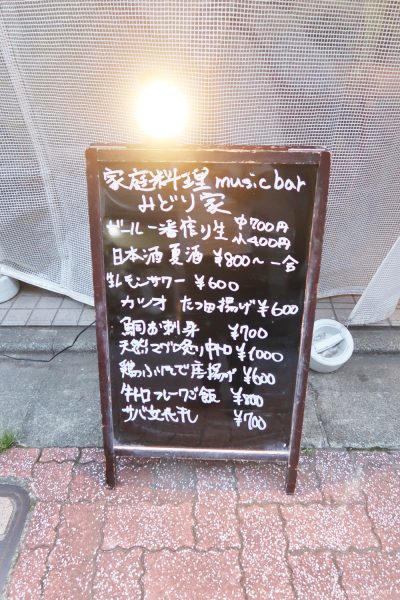 家庭料理 music bar
みどり家
ビール一番搾り生 中700円
小400円
日本酒 夏酒 ¥800～一合
生レモンサワー ¥600
カツオ たつ田揚げ ¥600
鯛お刺身 ¥700
天然マグロ炙り中トロ ¥1000
鶏ふりそで唐揚げ ¥600
牛トロフレークご飯 ¥800
サバ文化干し ¥700